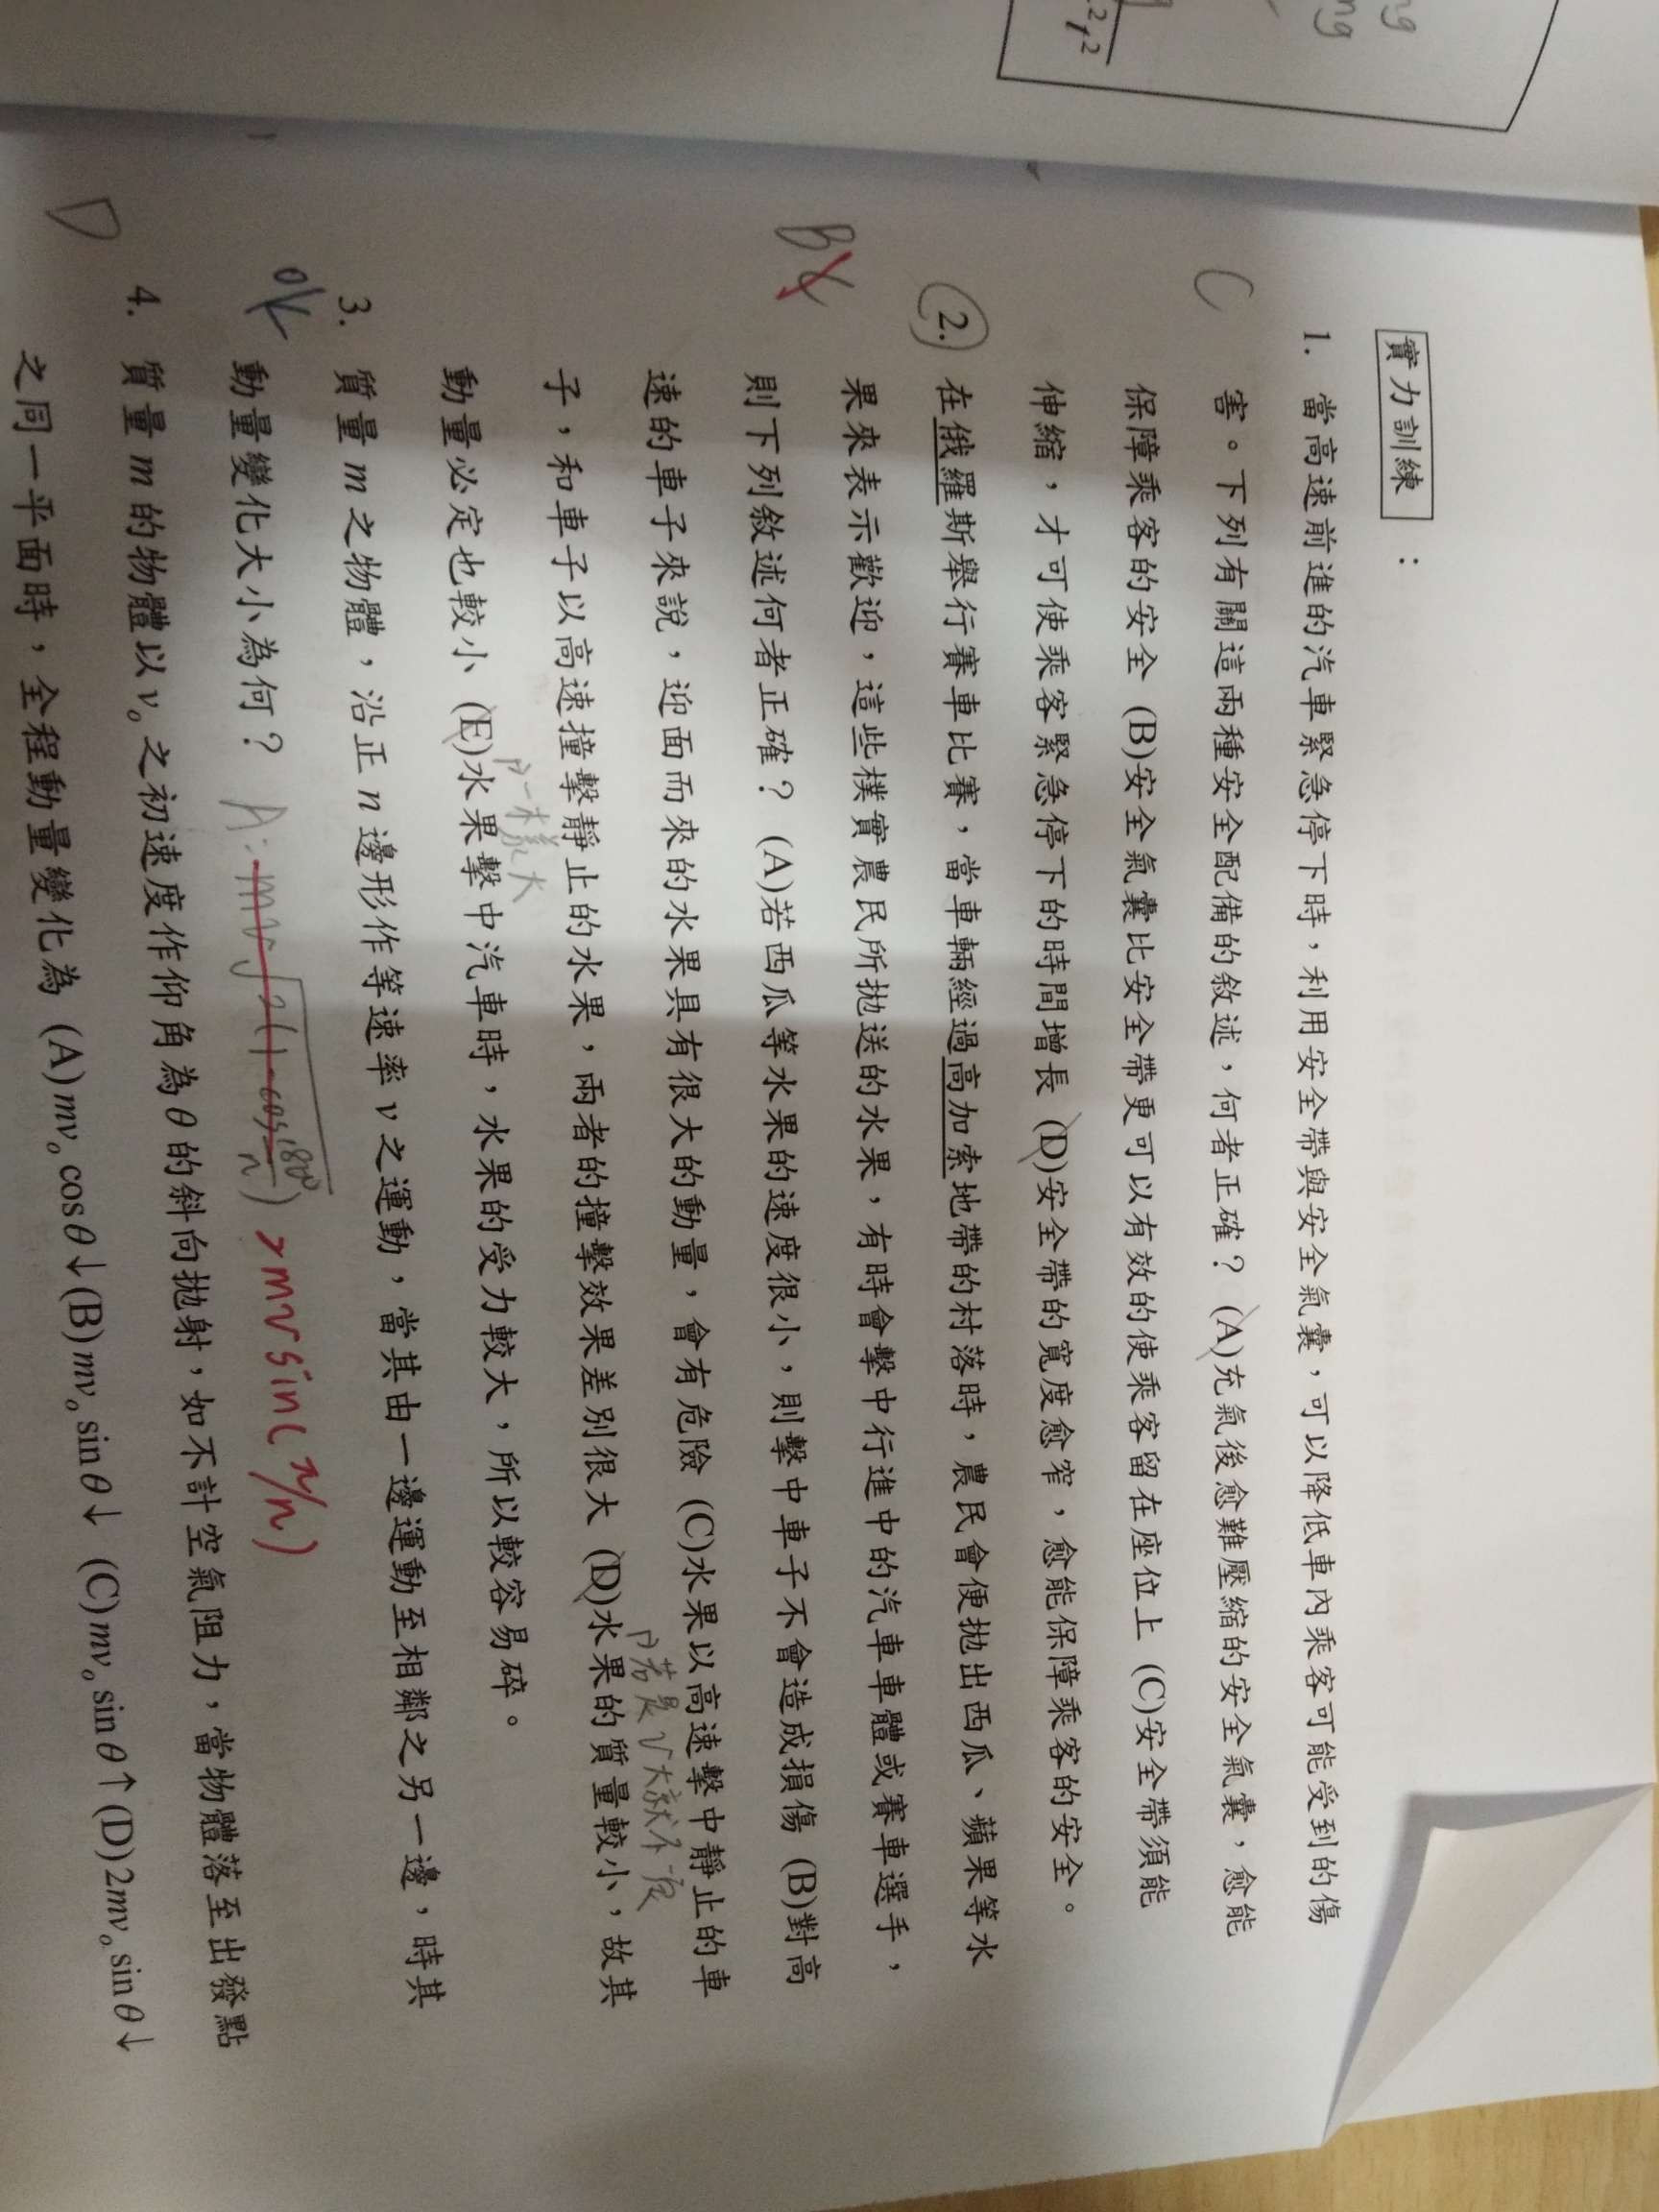 實力訓練：
C
1. 當高速前進的汽車緊急停下時，利用安全帶與安全氣囊，可以降低車內乘客可能受到的傷
害。下列有關這兩種安全配備的敘述，何者正確？(A)充氣後愈難壓縮的安全氣囊，愈能
保障乘客的安全 (B)安全氣囊比安全帶更可以有效的使乘客留在座位上 (C)安全帶須能
伸縮，才可使乘客緊急停下的時間增長 (D)安全帶的寬度愈窄，愈能保障乘客的安全。
2. 在俄羅斯舉行賽車比賽，當車輛經過高加索地帶的村落時，農民會便拋出西瓜、蘋果等水
果來表示歡迎，這些樸實農民所拋送的水果，有時會擊中行進中的汽車車體或賽車選手，
B
則下列敘述何者正確？(A)若西瓜等水果的速度很小，則擊中車子不會造成損傷 (B)對高
速的車子來說，迎面而來的水果具有很大的動量，會有危險 (C)水果以高速擊中靜止的車
P若是V大就不一定
子，和車子以高速撞擊靜止的水果，兩者的撞擊效果差別很大 (D)水果的質量較小，故其
P一樣大
動量必定也較小 (E)水果擊中汽車時，水果的受力較大，所以較容易碎。
3. 質量m之物體，沿正n邊形作等速率v之運動，當其由一邊運動至相鄰之另一邊，時其
ok
動量變化大小為何？ A: mv√2(1-cos180°/n) 2mv sin(π/n)
4. 質量m的物體以v₀之初速度作仰角為θ的斜向拋射，如不計空氣阻力，當物體落至出發點
D
之同一平面時，全程動量變化為 (A)mv₀cosθ↓(B)mv₀sinθ↓ (C)mv₀sinθ↑(D)2mv₀sinθ↓